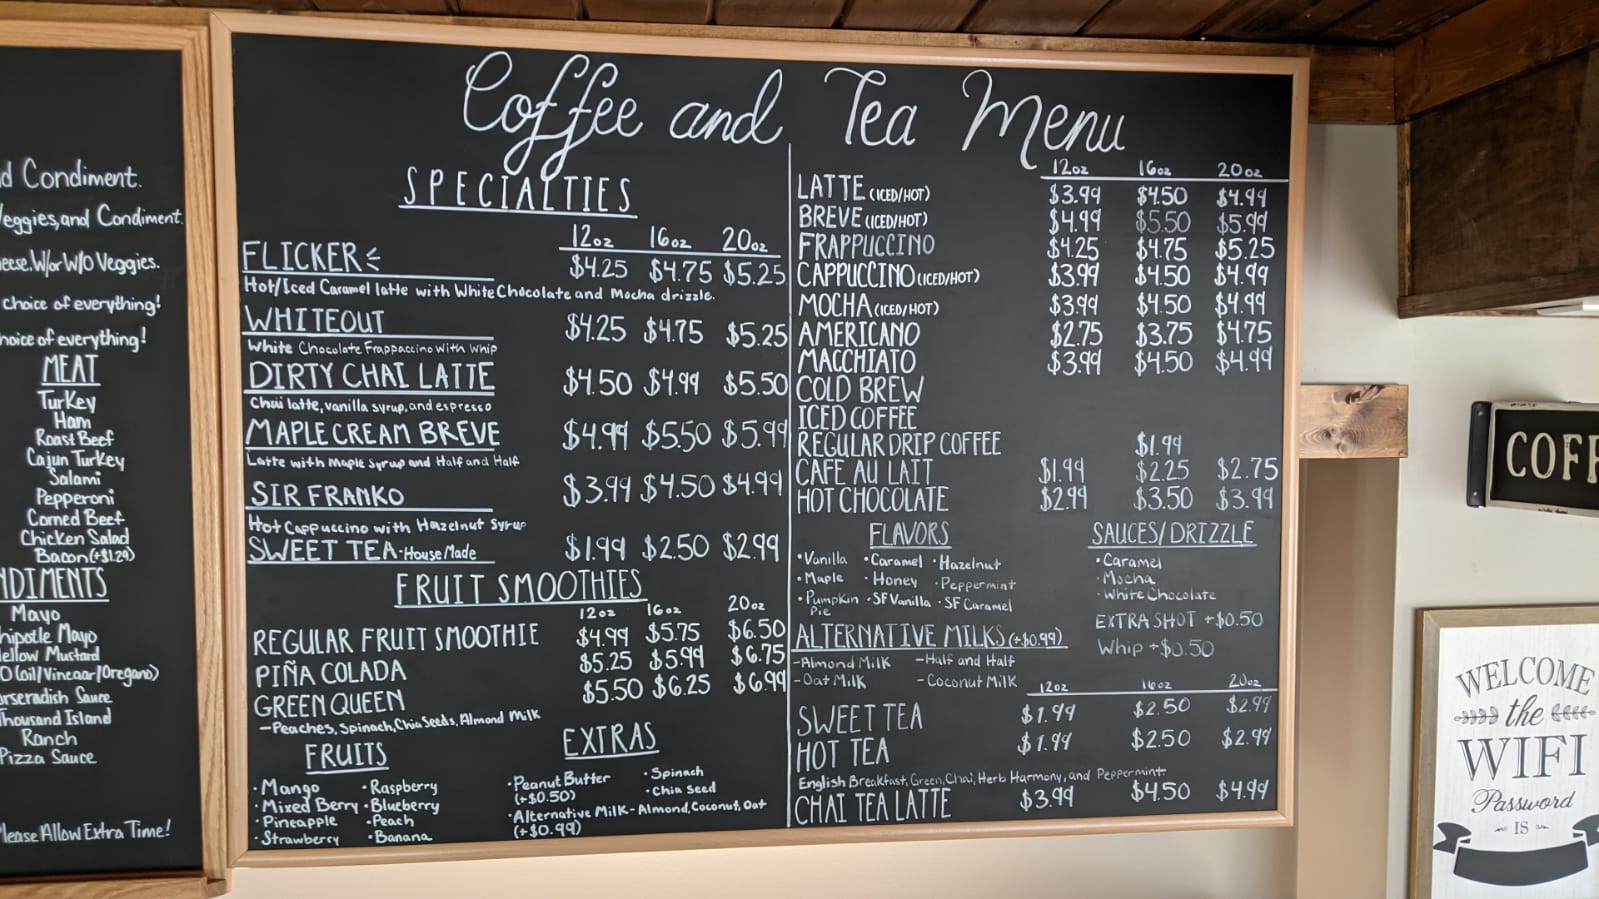 d Condiment.
Veggies, and Condiment.
heese. W/or W/O Veggies.
choice of everything!
hoice of everything!
MEAT
Turkey
Ham
Roast Beef
Cajun Turkey
Salami
Pepperoni
Corned Beef
Chicken Salad
Bacon (+$1.29)
NDIMENTS
Mayo
hipotle Mayo
ellow Mustard
O (Oil/Vinegar/Oregano)
orseradish Sauce
Thousand Island
Ranch
Pizza Sauce
Please Allow Extra Time!
Coffee and Tea Menu
SPECIALTIES
12oz 16oz 20oz
FLICKER $4.25 $4.75 $5.25
Hot/Iced Caramel latte with White Chocolate and Mocha drizzle.
WHITEOUT $4.25 $4.75 $5.25
White Chocolate Frappaccino with whip
DIRTY CHAI LATTE $4.50 $4.99 $5.50
Chai latte, vanilla syrup, and espresso
MAPLE CREAM BREVE $4.99 $5.50 $5.99
Latte with Maple syrup and Half and Half
SIR FRANKO $3.99 $4.50 $4.99
Hot Cappuccino with Hazelnut Syrup
SWEET TEA - House Made $1.99 $2.50 $2.99
FRUIT SMOOTHIES
12oz 16oz 20oz
REGULAR FRUIT SMOOTHIE $4.99 $5.75 $6.50
PIÑA COLADA $5.25 $5.99 $6.75
GREEN QUEEN $5.50 $6.25 $6.99
- Peaches, Spinach, Chia Seeds, Almond Milk
FRUITS
• Mango • Raspberry
• Mixed Berry • Blueberry
• Pineapple • Peach
• Strawberry • Banana
EXTRAS
• Peanut Butter • Spinach
(+$0.50) • Chia Seed
• Alternative Milk - Almond, Coconut, Oat
(+$0.99)
12oz 16oz 20oz
LATTE (ICED/HOT) $3.99 $4.50 $4.99
BREVE (ICED/HOT) $4.99 $5.50 $5.99
FRAPPUCCINO $4.25 $4.75 $5.25
CAPPUCCINO (ICED/HOT) $3.99 $4.50 $4.99
MOCHA (ICED/HOT) $3.99 $4.50 $4.99
AMERICANO $2.75 $3.75 $4.75
MACCHIATO $3.99 $4.50 $4.99
COLD BREW
ICED COFFEE
REGULAR DRIP COFFEE $1.99
CAFE AU LAIT $1.99 $2.25 $2.75
HOT CHOCOLATE $2.99 $3.50 $3.99
FLAVORS
• Vanilla • Caramel • Hazelnut
• Maple • Honey • Peppermint
• Pumpkin • SF Vanilla • SF Caramel
Pie
SAUCES/DRIZZLE
• Caramel
• Mocha
• White Chocolate
EXTRA SHOT +$0.50
Whip +$0.50
ALTERNATIVE MILKS (+$0.99)
- Almond Milk - Half and Half
- Oat Milk - Coconut Milk
12oz 16oz 20oz
SWEET TEA $1.99 $2.50 $2.99
HOT TEA $1.99 $2.50 $2.99
English Breakfast, Green, Chai, Herb Harmony, and Peppermint
CHAI TEA LATTE $3.99 $4.50 $4.99
COFF
WELCOME
the
WIFI
Password
IS